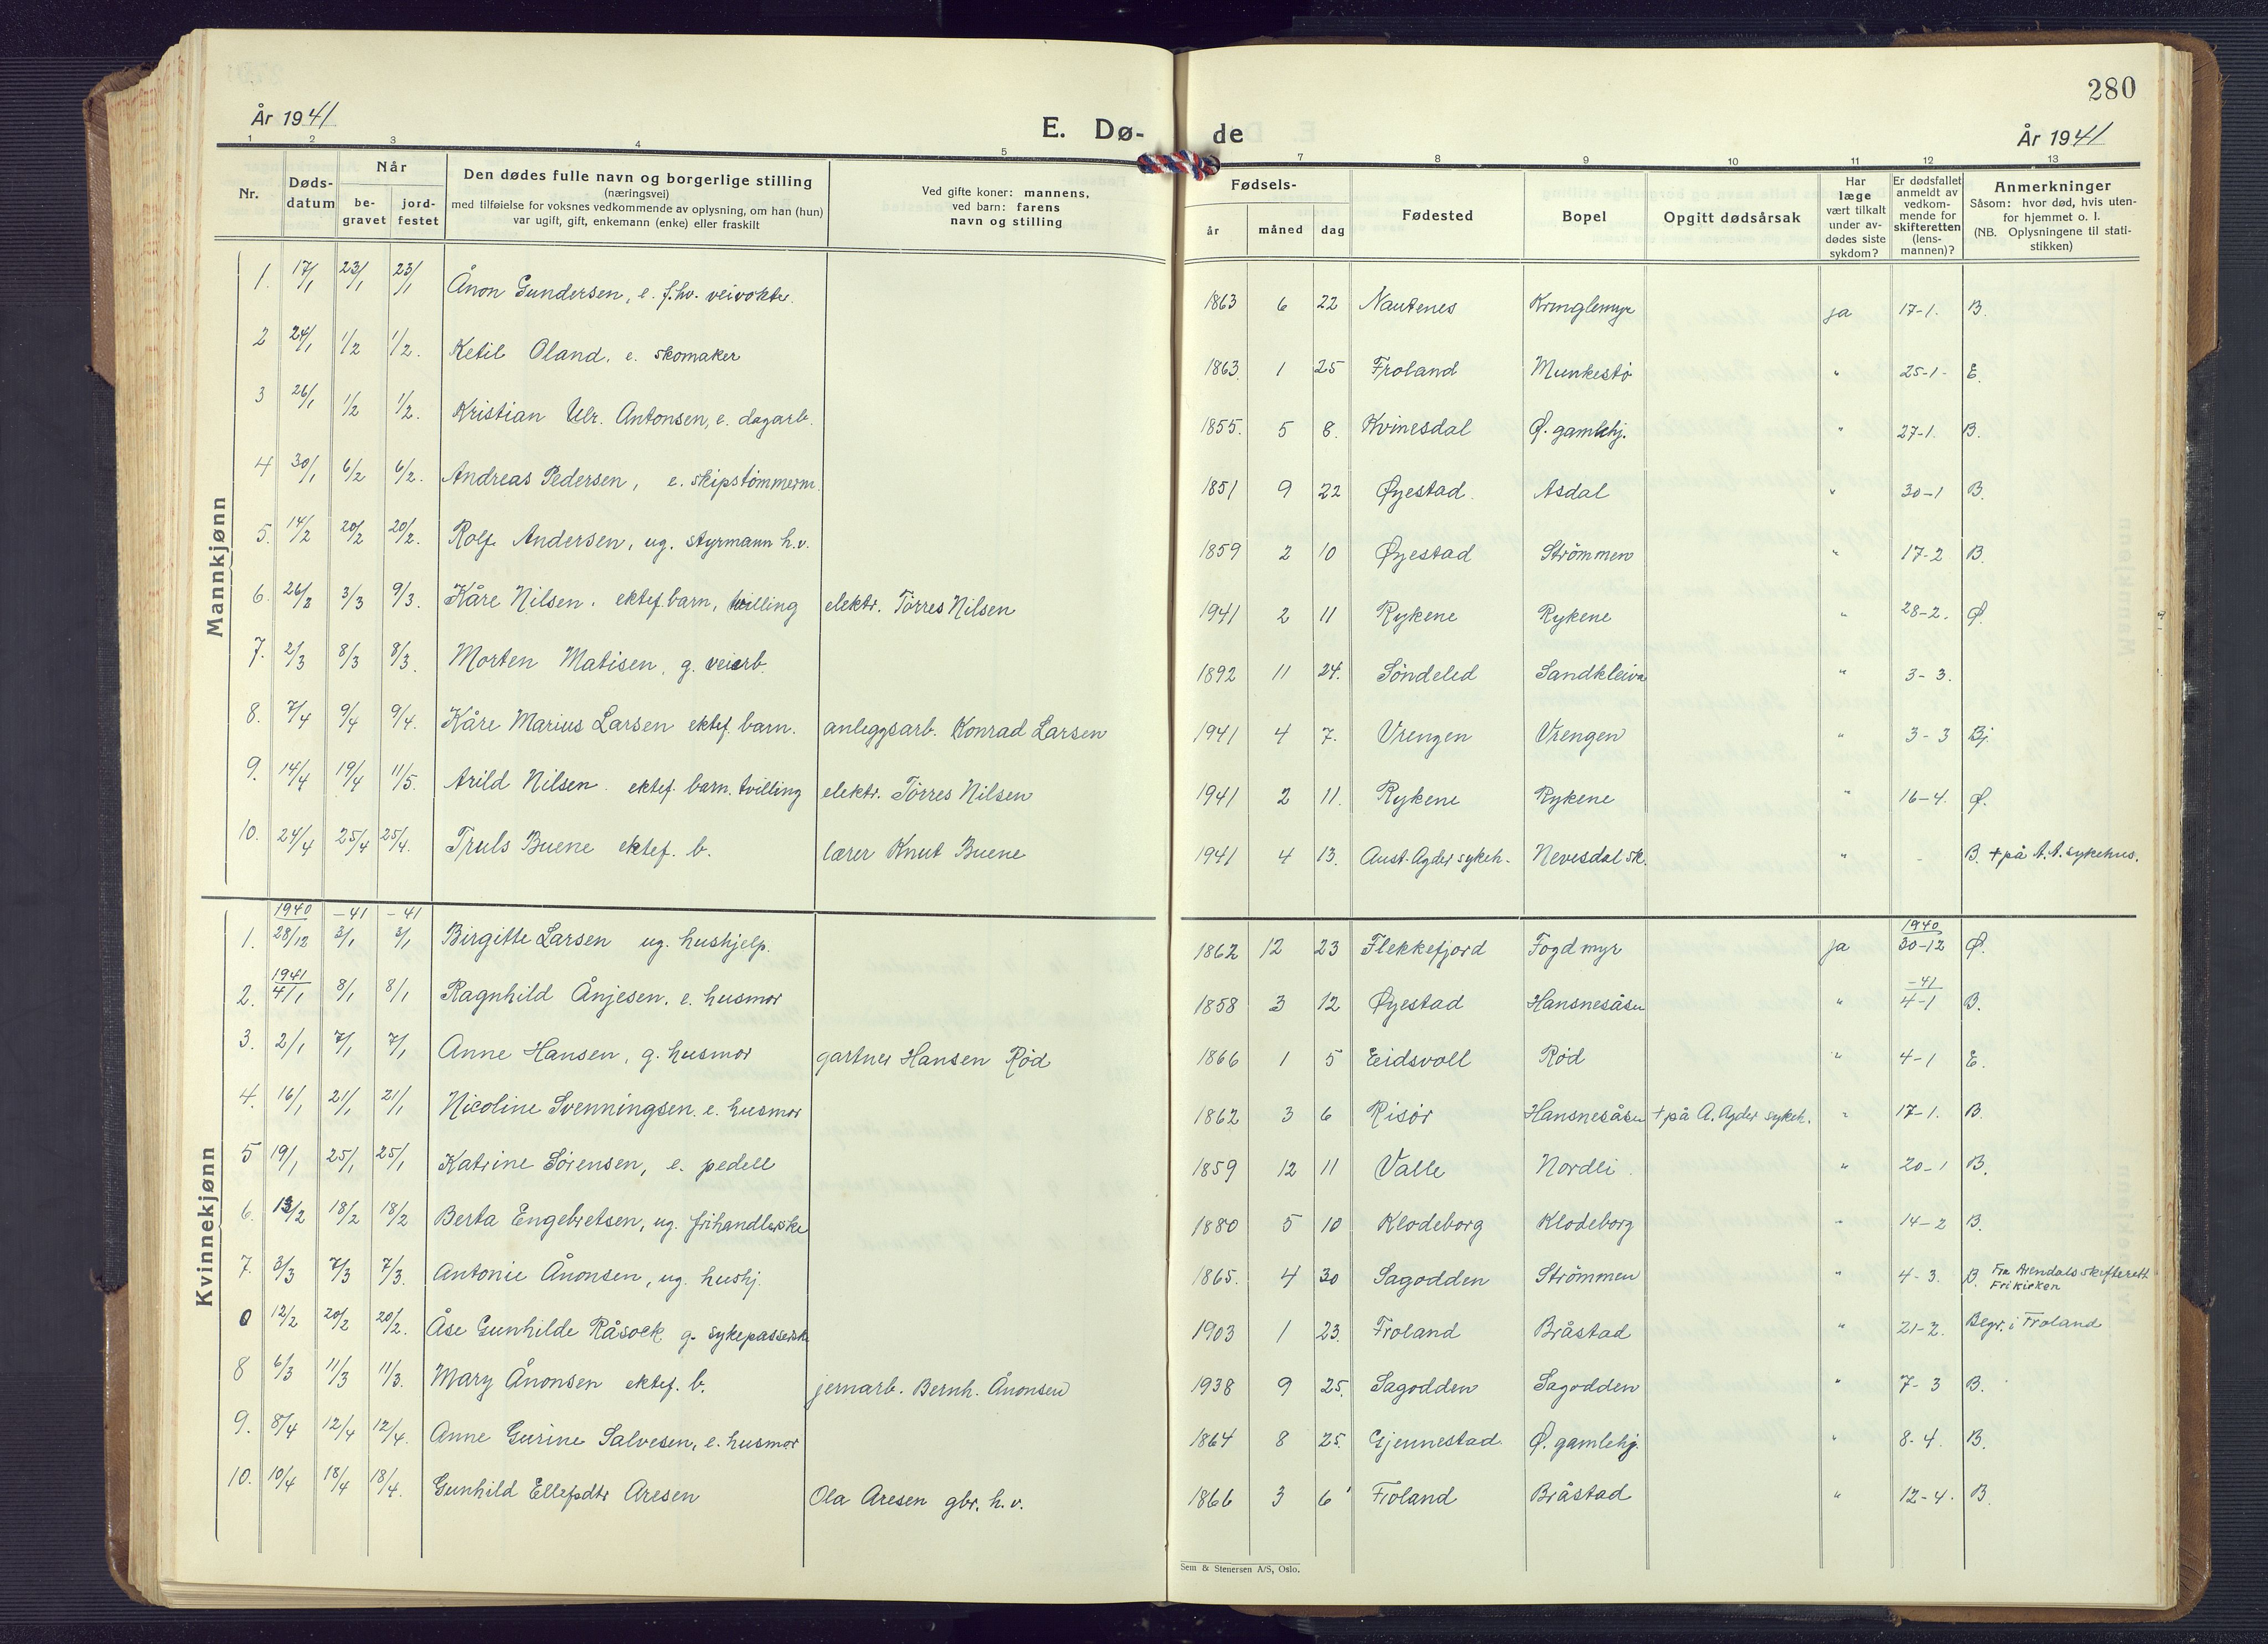 280
År 1941
E. Dø-
de
År 1941
1 2 3 4 5 7 8 9 10 11 12 13
Nr.
Døds-
datum
Når
be-
gravet
jord-
festet
Den dødes fulle navn og borgerlige stilling
(næringsvei)
med tilføielse for voksnes vedkommende av oplysning, om han (hun)
var ugift, gift, enkemann (enke) eller fraskilt
Ved gifte koner: mannens,
ved barn: farens
navn og stilling
Fødsels-
år måned dag
Fødested
Bopel
Opgitt dødsårsak
Har
læge
vært tilkalt
under av-
dødes siste
sykdom?
Er dødsfallet
anmeldt av
vedkom-
mende for
skifteretten
(lens-
mannen)?
Anmerkninger
Såsom: hvor død, hvis uten-
for hjemmet o. l.
(NB. Oplysningene til stati-
stikken)
Mannkjønn
1. 17/1 23/1 23/1 Ånon Gundersen, e. f.hv. veivokter. 1863 6 22 Nautenes Kringlemyr ja 17-1. B.
2 24/1 1/2 1/2. Ketil Oland. e. skomaker 1863. 1 25 Froland Munkestø " 25-1- E.
3 26/1 1/2 1/2. Kristian Ulr. Antonsen, e. dagarb. 1855. 5 8. Kvinesdal Ø. gamlehj. " 27-1. B.
4 30/1 6/2 6/2. Andreas Pedersen, e. skipstømmerm. 1851 9 22 Øyestad. Asdal " 30-1 B.
5. 14/2 20/2 20/2. Rolf Andersen, ug. styrmann h.v. 1859 2 10 Øyestad Strömmen " 17-2 B.
6. 26/2 3/3 9/3. Kåre Nilsen. ektef. barn, tvilling elektr. Tørres Nilsen 1941 2 11 Rykene Rykene " 28-2. Ø.
7. 2/3 8/3 8/3. Morten Matisen, g. veiarb. 1892 11 24. Söndeled Sandkleiva " 3-3.
8. 7/4 9/4 9/4. Kåre Marius Larsen ektef. barn. anleggsarb. Konrad Larsen 1941 4 7. Vrengen Vrengen " 3-3 Bj.
9. 14/4 19/4 11/5. Arild Nilsen. ektef. barn. tvilling elektr. Tørres Nilsen 1941 2 11. Rykene Rykene " 16-4. Ø.
10. 24/4 25/4 25/4. Truls Buene ektef. b. lærer Knut Buene 1941 4 13. Aust-Agder sykeh. Nevesdal sk. " - B. + på A.A. sykehus.
Kvinnekjønn
1940 -41 -41 1940
1. 28/12 3/1 3/1 Birgitte Larsen ug. hushjelp. 1862 12 23 Flekkefjord Fogdmyr ja 30-12 Ø.
1941 -41
2. 4/1 8/1 8/1 Ragnhild Ånjesen. e. husmor 1858 3 12 Øyestad Hansnesåsen " 4-1 B.
3. 2/1 7/1 7/1 Anne Hansen, g. husmor gartner Hansen Rød 1866 1 5 Eidsvoll Rød " 4-1 E.
4. 16/1 21/1 21/1 Nicoline Svenningsen. e. husmor 1862 3 6 Risør Hansnesåsen + på A. Agder sykeh. " 17-1. B.
5 19/1 25/1 25/1 Katrine Sørensen, e. pedell 1859 12 11 Valle Nordli. " 20-1 B.
6. 13/2 18/2 18/2 Berta Engebretsen, ug. frihandlerske 1880 5 10 Klodeborg Klodeborg " 14-2 B.
7. 3/3 7/3 7/3. Antonie Ånonsen, ug. hushj. 1865. 4 30 Sagodden Strömmen " 4-3. B. Fra Arendals skifterett
Frikirken
0 12/2 20/2 20/2. Åse Gunhilde Råsoek g. sykepasserske 1903 1 23. Froland Bråstad " 21-2. Begr. i Froland
8 6/3 11/3 11/3. Mary Ånonsen ektef. b. jernarb. Bernh. Ånonsen 1938 9 25. Sagodden Sagodden " 7-3 B.
9. 8/4 12/4 12/4. Anne Gurine Salvesen, e. husmor 1864 8 25. Gjennestad Ø. gamlehj. " 8-4. B.
10. 10/4 18/4 18/4. Gunhild Ellefsdtr Aresen Ola Aresen gbr. h.v. 1866 3 6 Froland Bråstad " 12-4. B.
Sem & Stenersen A/S, Oslo.